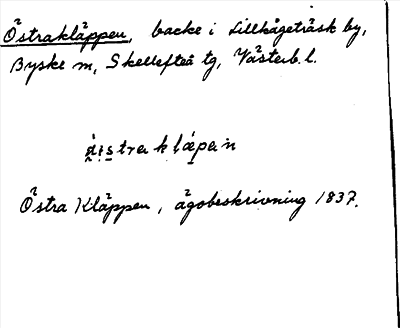 Östrakläppen, backe i Lillkågeträsk by,
Byske sn, Skellefteå tg, Västerb. l.
Östra Kläppen, ägobeskrivning 1837.